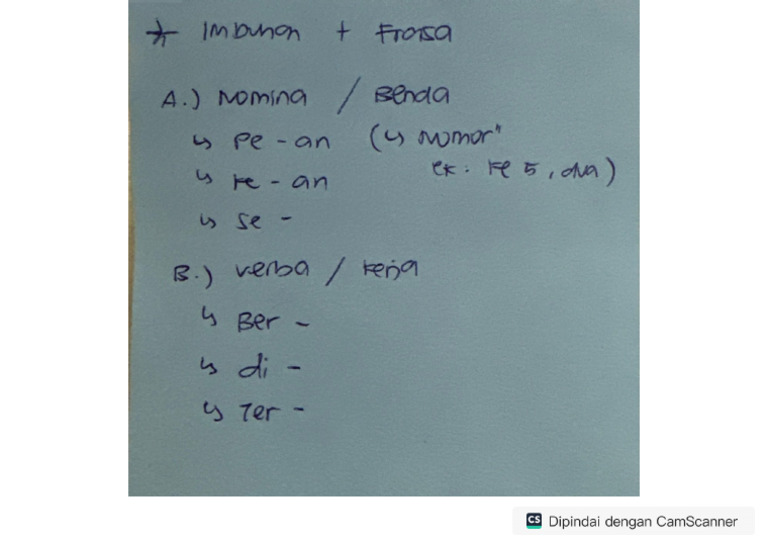 * Imbuhan + Frasa
A.) Nomina / Benda
↳ Pe - an (↳ Nomor"
ex : ke 5, dua)
↳ ke - an
↳ se -
B.) verba / kerja
↳ Ber -
↳ di -
↳ Ter -
CS Dipindai dengan CamScanner